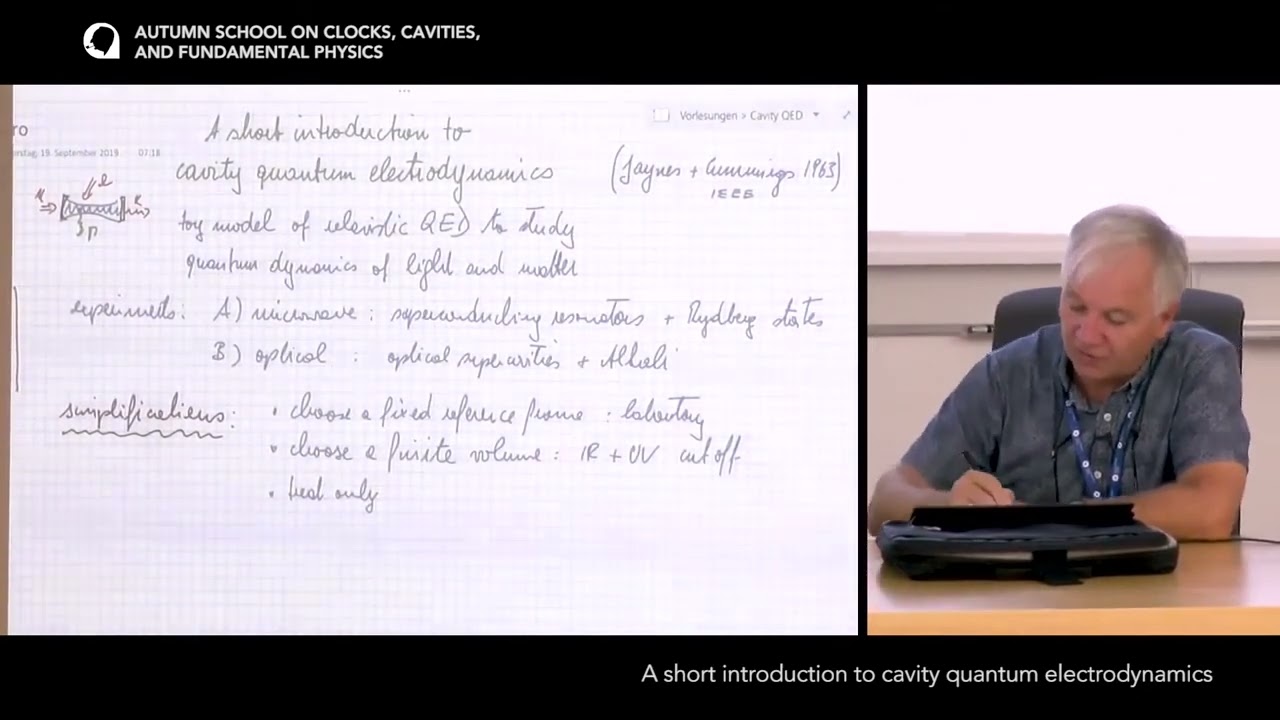 AUTUMN SCHOOL ON CLOCKS, CAVITIES,
AND FUNDAMENTAL PHYSICS
Vorlesungen > Cavity QED
ro
19. September 2019 07:18
A short introduction to
cavity quantum electrodynamics
(Jaynes + Cummings 1963)
IEEE
toy model of relativistic QED to study
quantum dynamics of light and matter
experiments: A) microwave: superconducting resonators + Rydberg states
B) optical : optical supercavities + Alkali
simplifications: • choose a fixed reference frame : laboratory
• choose a finite volume : IR + UV cut off
• treat only
A short introduction to cavity quantum electrodynamics